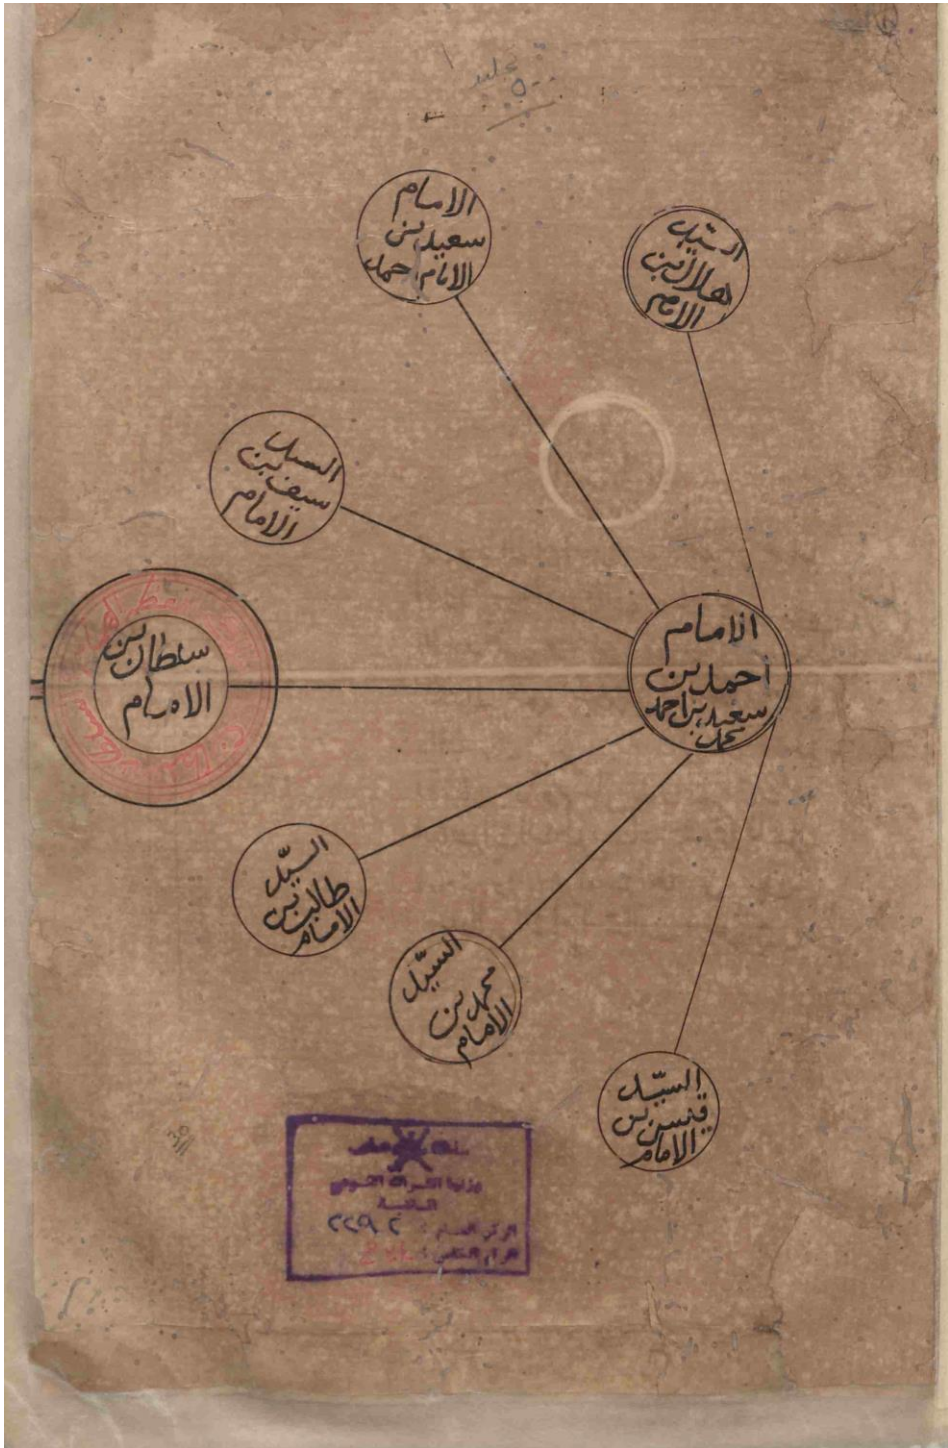 الامام
سعيد بن
الامام احمد
السيّد
هلال بن
الامام
السيد
سيف بن
الامام
الامام
احمد بن
سعيد بن احمد
محمد
سلطان بن
الامام
السيّد
طالب بن
الامام
السيّد
محمد بن
الامام
السيّد
قيس بن
الامام
سلطنة عمان
وزارة التراث القومي
الرقم العام : ٢٢٩٢
الرقم الخاص :